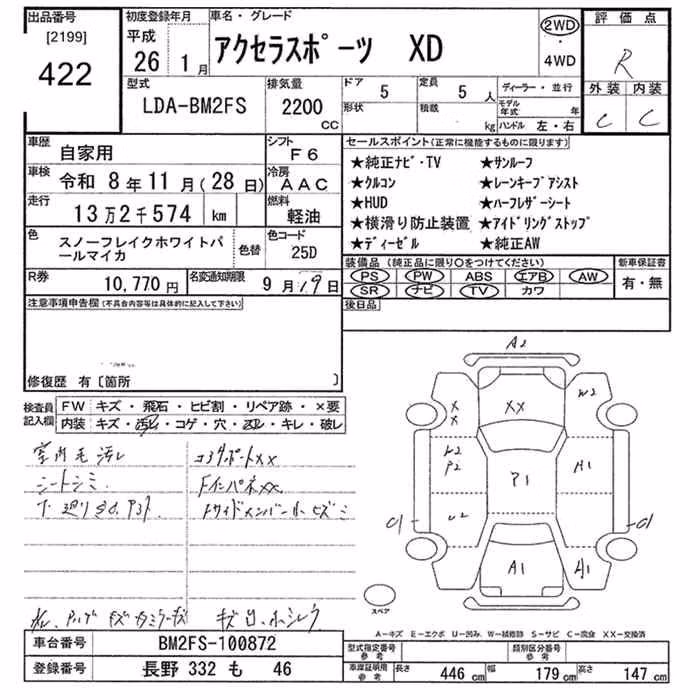 出品番号
[2199]
422
初度登録年月
平成
26 1月
車名・グレード
アクセラスポーツ XD
2WD
・
4WD
評価点
R
外装 内装
C C
型式
LDA-BM2FS
排気量
2200
CC
ドア 5
形状
定員 5 人
積載 kg
ディーラー・並行
モデル年式 年
ハンドル 左・右
車歴 自家用
シフト F6
車検 令和 8年11月(28日)
冷房 AAC
走行 13万2千574 km
燃料 軽油
色 スノーフレイクホワイトパールマイカ
色替
色コード 25D
R券 10,770円
名変通知期限 9月19日
セールスポイント(正常に機能するものに限ります)
★純正ナビ・TV ★サンルーフ
★クルコン ★レーンキープアシスト
★HUD ★ハーフレザーシート
★横滑り防止装置 ★アイドリングストップ
★ディーゼル ★純正AW
装備品(純正品に限り○をつけてください)
PS PW ABS エアB AW
SR ナビ TV カワ
新車保証書
有・無
後日品
注意事項申告欄(不具合内容等は具体的に記入して下さい)
修復歴 有〔箇所 〕
検査員記入欄
FW キズ・飛石・ヒビ割・リペア跡・×要
内装 キズ・汚レ・コゲ・穴・スレ・キレ・破レ
室内毛汚レ
シートシミ
コアサポートXX
FインパネXX
A2
XX
X
X
W2
P2
P1
A1
U2
A1
W2
C1
C1
スペア
A-キズ E-エクボ U-凹み W-補修跡 S-サビ C-腐食 XX-交換済
車台番号 BM2FS-100872
登録番号 長野 332 も 46
型式指定番号
参考
類別区分番号
参考
車庫証明用
参考
長さ 446 cm 幅 179 cm 高さ 147 cm